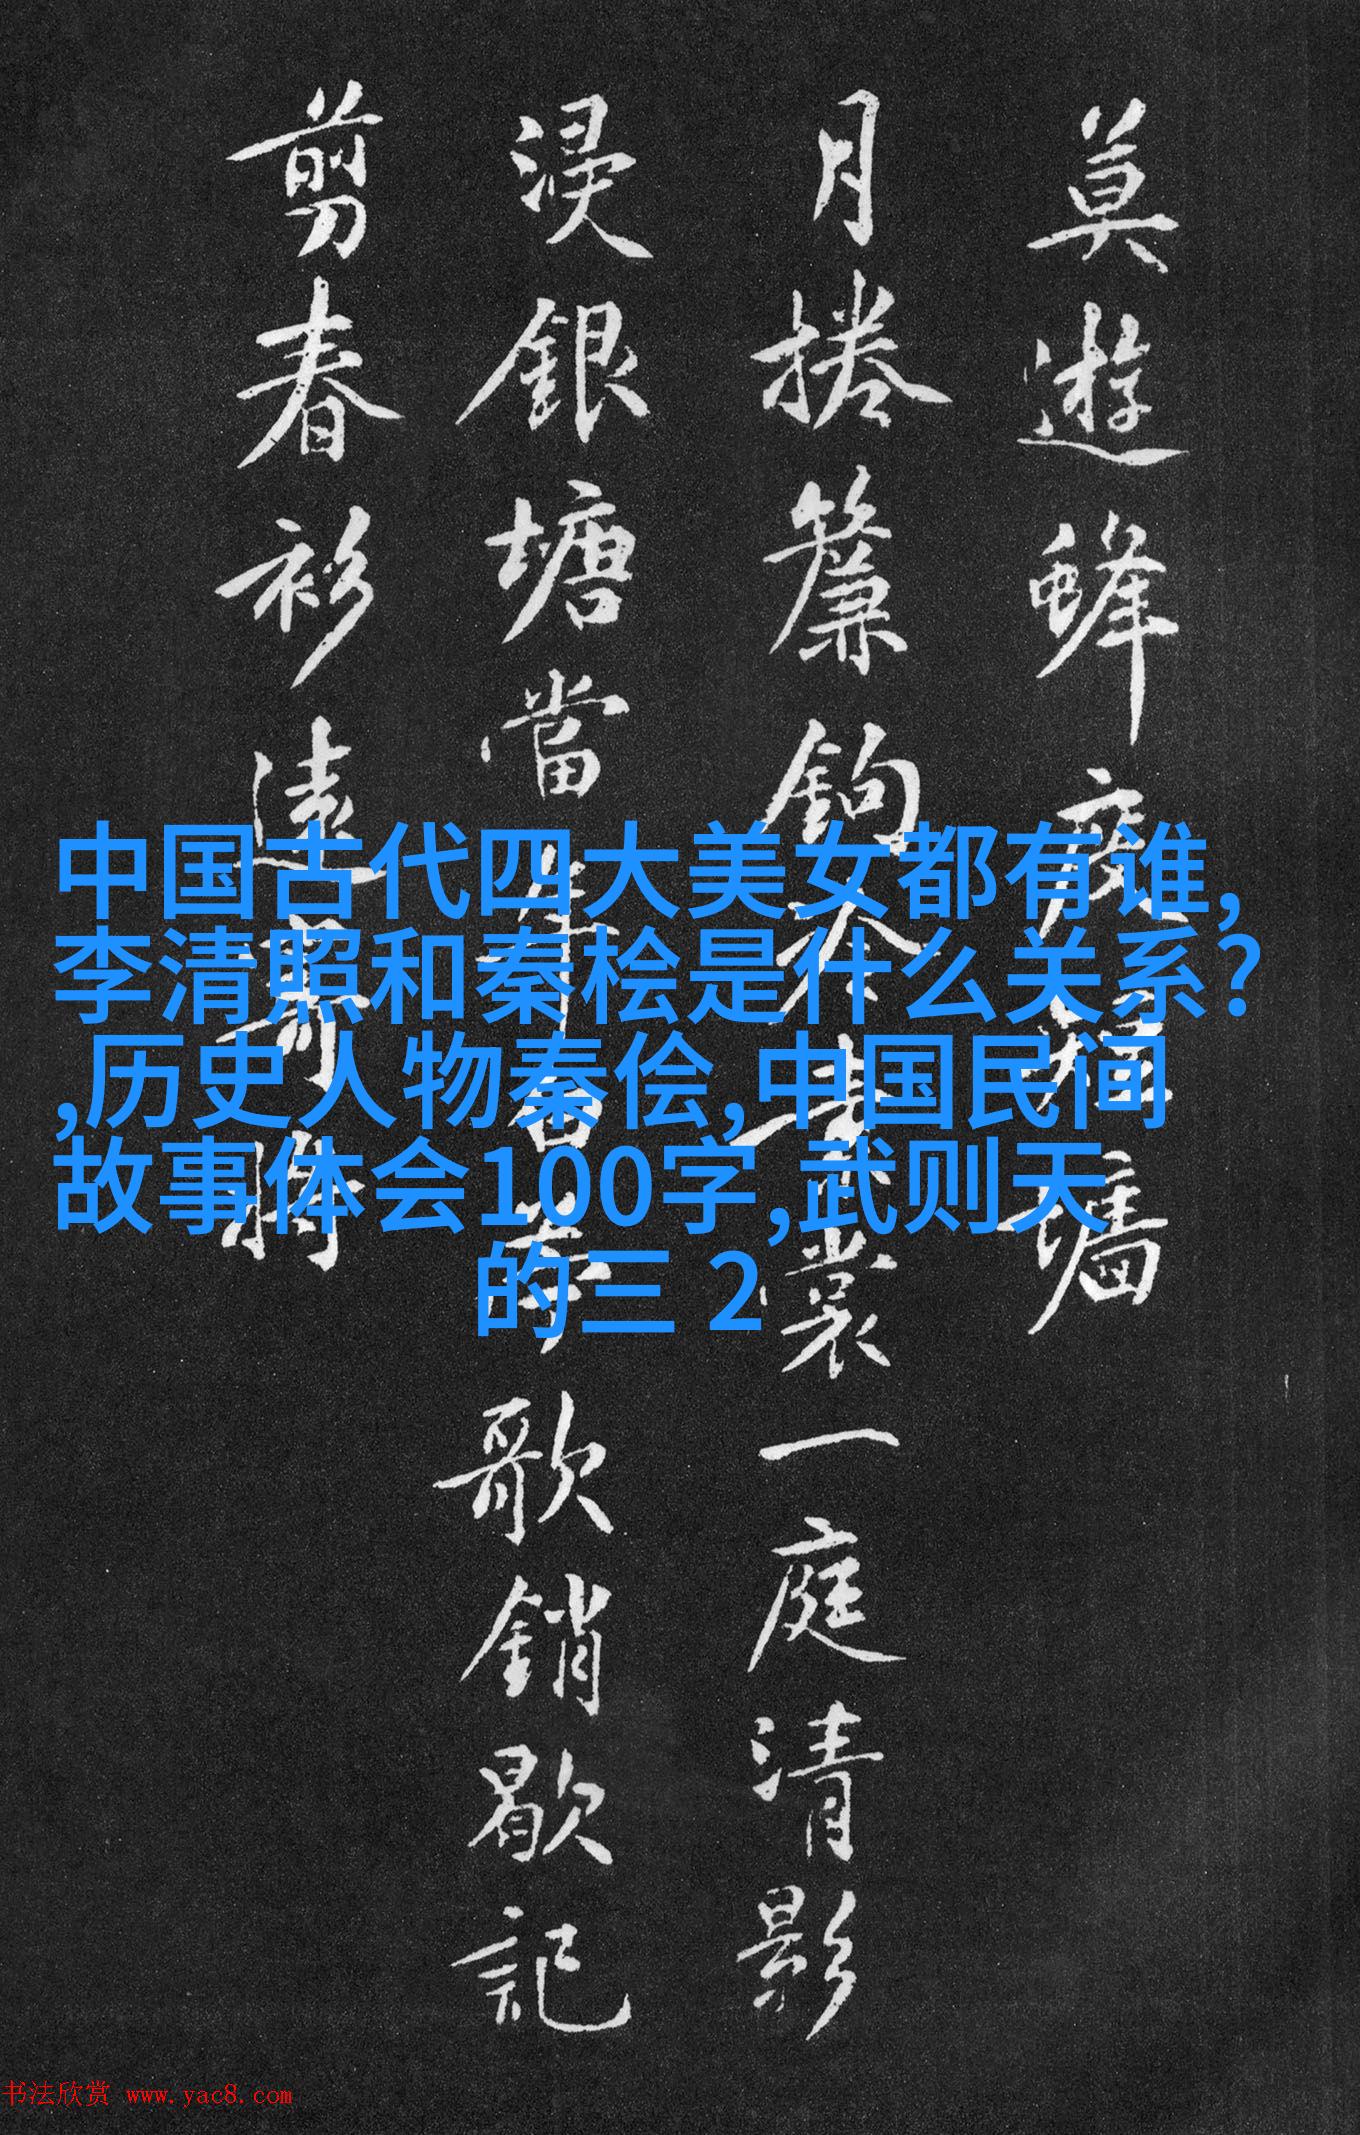 莫遊蜂度短墻
月捲簾鉤冷裳一庭清影
浸銀塘當年歌銷歇記
剪春衫遠寄將
中国古代四大美女都有谁,
李清照和秦桧是什么关系?
,历史人物秦侩,中国民间
故事体会100字,武则天
的三 2
书法欣赏 www.yac8.com